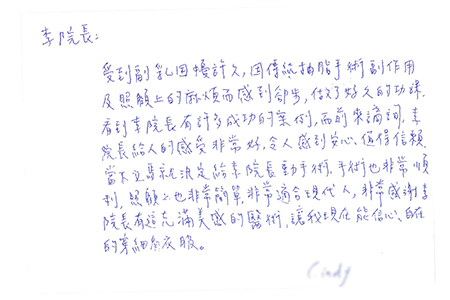 李院長:
受到副乳困擾許久,因傳統抽脂手術副作用
及照顧上的麻煩而感到卻步,做了好久的功課
看到李院長有許多成功的案例,而前來諮詢,李
院長給人的感受非常好,令人感到安心、值得信賴
當下立馬就決定給李院長動手術,手術也非常順
利,照顧上也非常簡單,非常適合現代人,非常感謝李
院長有這充滿美感的醫術,讓我現在能信心、自在
的穿細肩衣服。
Cindy